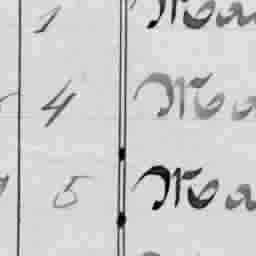 1 Ma
4 Ma
5 Ma